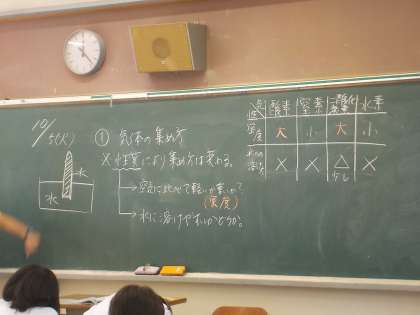 10/5(火)
① 気体の集め方
※ 性質により集め方は変わる。
→空気に比べて軽いか重いか?
(密度)
→水に溶けやすいかどうか。
水
水
気体 酸素 窒素 二酸化炭素 水素
密度 大 小 大 小
水への溶け方 × × △ ×
少し